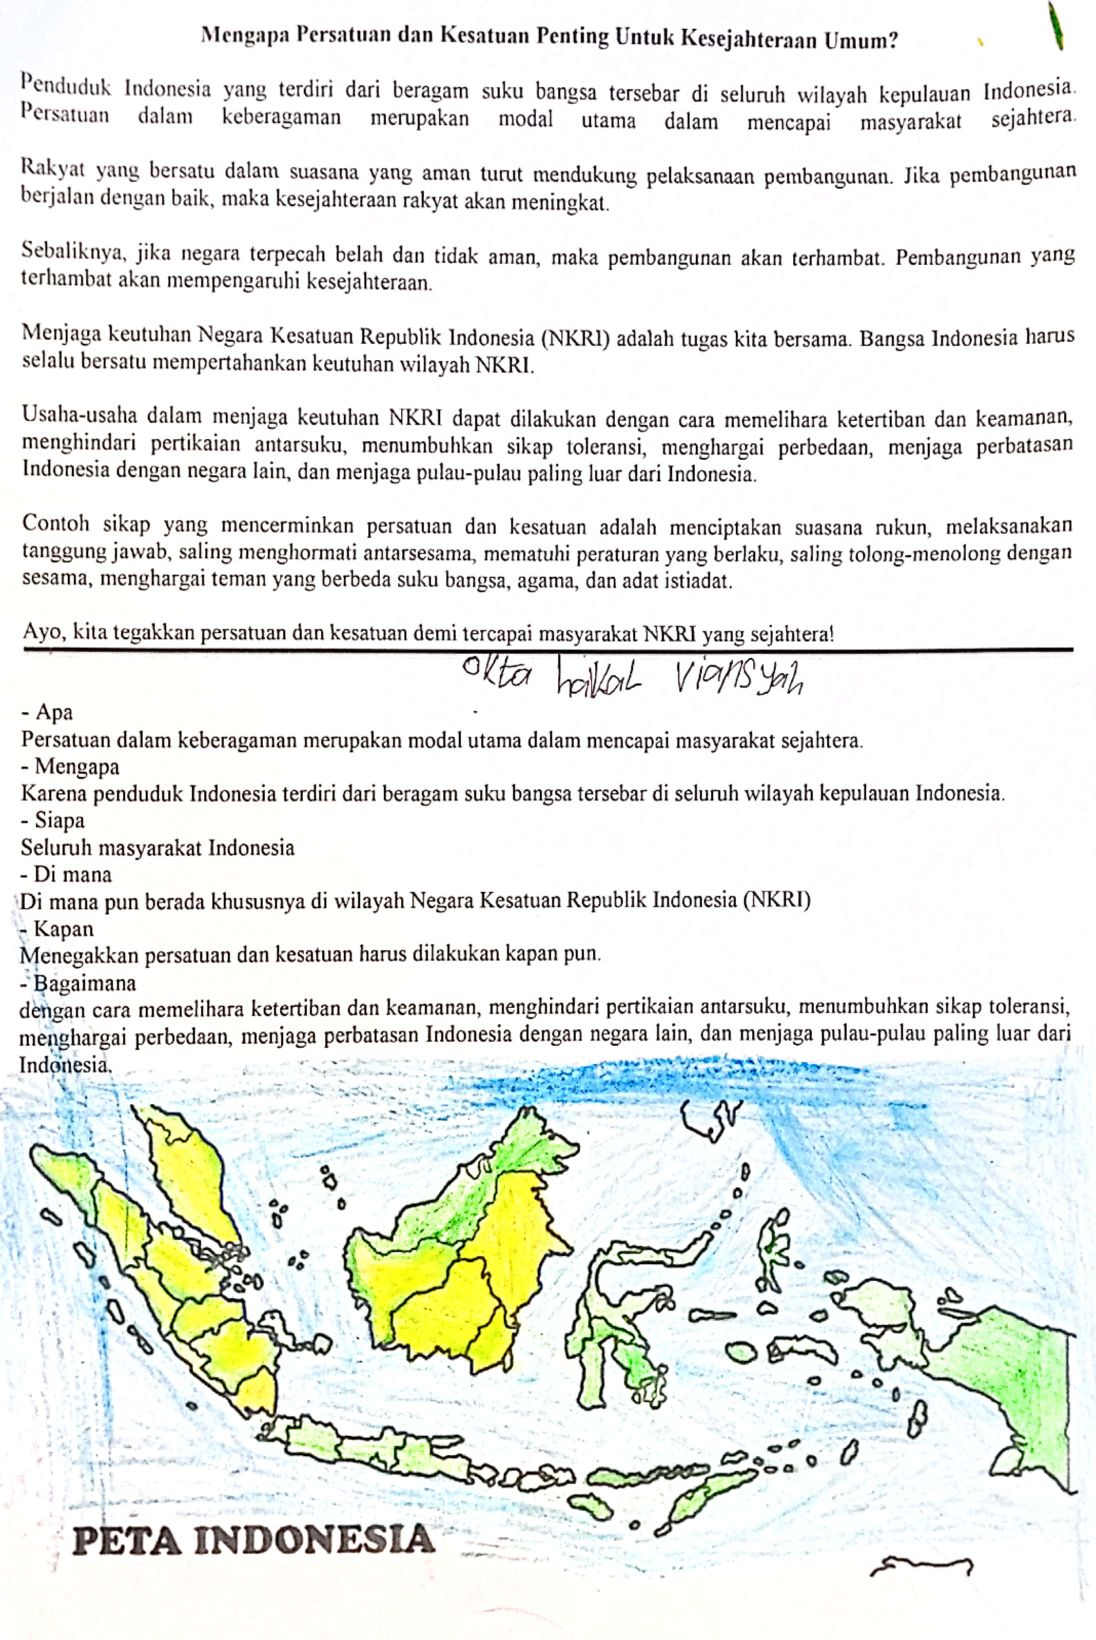 Mengapa Persatuan dan Kesatuan Penting Untuk Kesejahteraan Umum?
Penduduk Indonesia yang terdiri dari beragam suku bangsa tersebar di seluruh wilayah kepulauan Indonesia.
Persatuan dalam keberagaman merupakan modal utama dalam mencapai masyarakat sejahtera.
Rakyat yang bersatu dalam suasana yang aman turut mendukung pelaksanaan pembangunan. Jika pembangunan
berjalan dengan baik, maka kesejahteraan rakyat akan meningkat.
Sebaliknya, jika negara terpecah belah dan tidak aman, maka pembangunan akan terhambat. Pembangunan yang
terhambat akan mempengaruhi kesejahteraan.
Menjaga keutuhan Negara Kesatuan Republik Indonesia (NKRI) adalah tugas kita bersama. Bangsa Indonesia harus
selalu bersatu mempertahankan keutuhan wilayah NKRI.
Usaha-usaha dalam menjaga keutuhan NKRI dapat dilakukan dengan cara memelihara ketertiban dan keamanan,
menghindari pertikaian antarsuku, menumbuhkan sikap toleransi, menghargai perbedaan, menjaga perbatasan
Indonesia dengan negara lain, dan menjaga pulau-pulau paling luar dari Indonesia.
Contoh sikap yang mencerminkan persatuan dan kesatuan adalah menciptakan suasana rukun, melaksanakan
tanggung jawab, saling menghormati antarsesama, mematuhi peraturan yang berlaku, saling tolong-menolong dengan
sesama, menghargai teman yang berbeda suku bangsa, agama, dan adat istiadat.
Ayo, kita tegakkan persatuan dan kesatuan demi tercapai masyarakat NKRI yang sejahtera!
okta haikal viansyah
- Apa
Persatuan dalam keberagaman merupakan modal utama dalam mencapai masyarakat sejahtera.
- Mengapa
Karena penduduk Indonesia terdiri dari beragam suku bangsa tersebar di seluruh wilayah kepulauan Indonesia.
- Siapa
Seluruh masyarakat Indonesia
- Di mana
Di mana pun berada khususnya di wilayah Negara Kesatuan Republik Indonesia (NKRI)
- Kapan
Menegakkan persatuan dan kesatuan harus dilakukan kapan pun.
- Bagaimana
dengan cara memelihara ketertiban dan keamanan, menghindari pertikaian antarsuku, menumbuhkan sikap toleransi,
menghargai perbedaan, menjaga perbatasan Indonesia dengan negara lain, dan menjaga pulau-pulau paling luar dari
Indonesia.
PETA INDONESIA